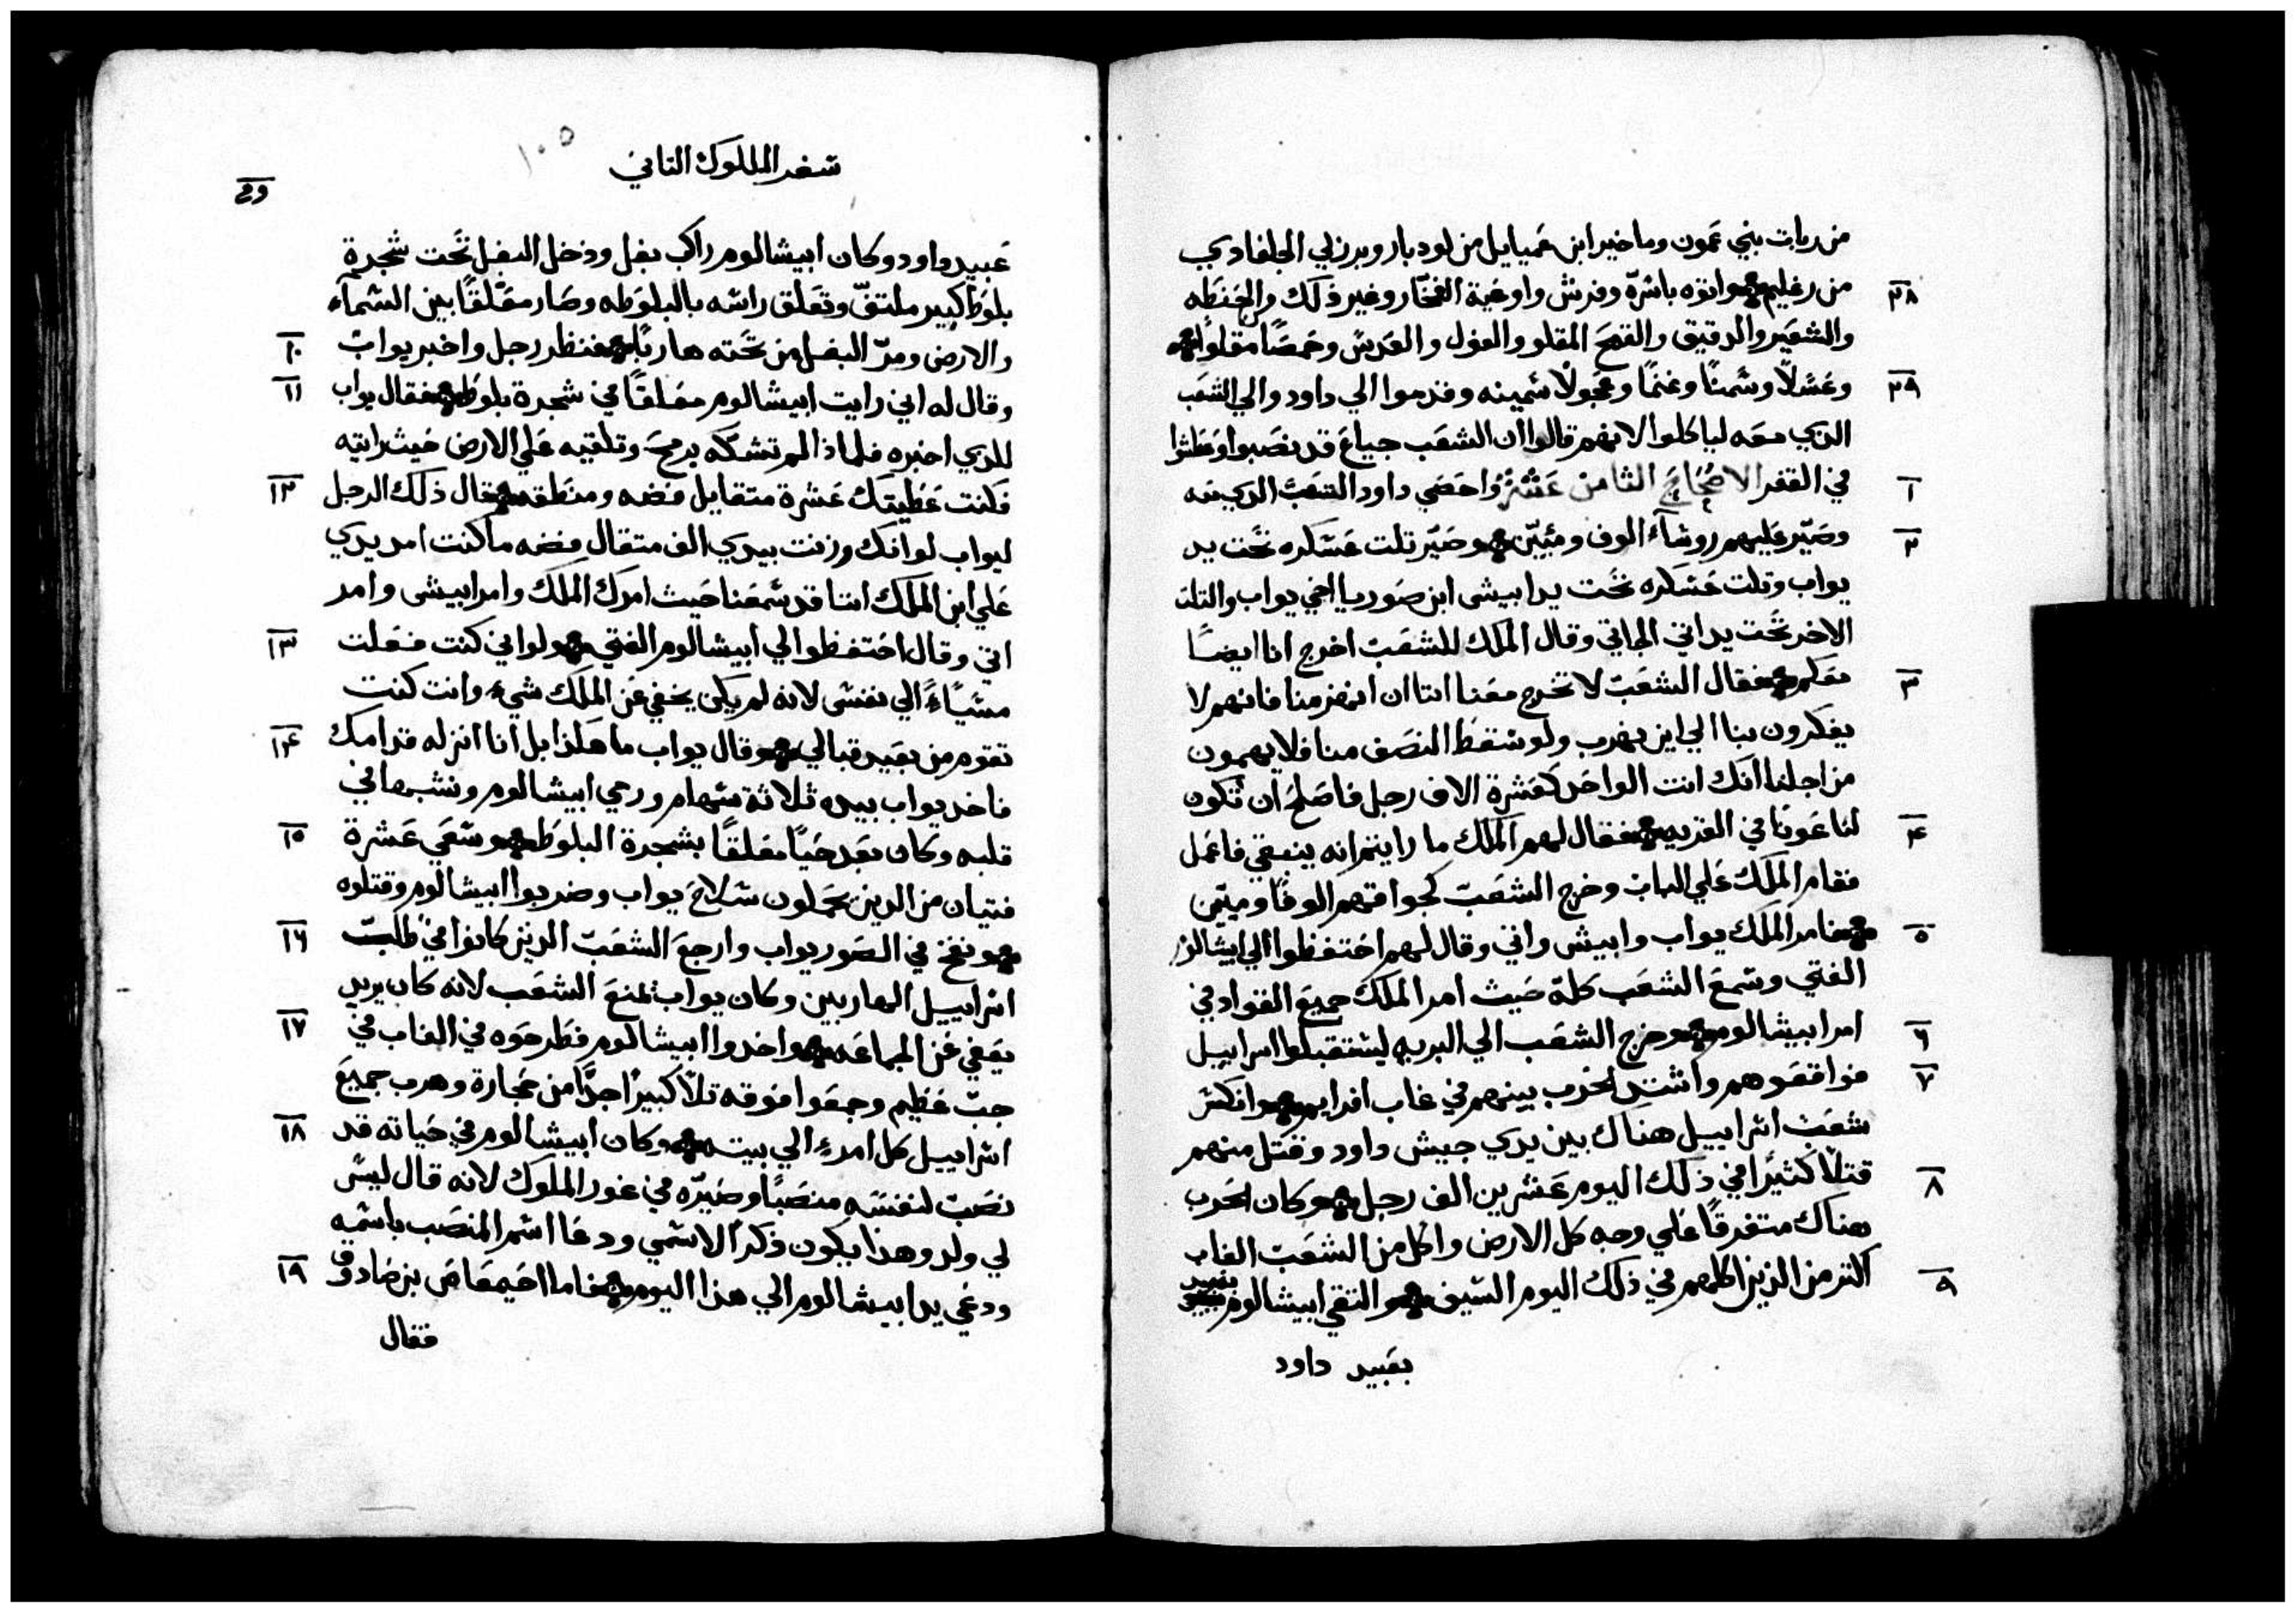 من ربات بني عمون وماخير ابن عميايل من لودبار وبرزلي الجلعادي
٢٨
من رغليم واتوه باسرّة وفرش واوعية الفخّار وغير ذلك والحنطه
والشعير والدقيق والقمح المقلو والفول والعدس وحمصًا مقلوا
٢٩
وعسلًا وسمنًا وغنمًا وعجولًا سمينه وقدموا الي داود والي الشعب
الذي معه لياكلوا لانهم قالوا ان الشعب جياع قد نصبوا وعطشوا
١
في القفر الاصحاح الثامن عشر واحصي داود الشعب الذي معه
٢
وصيّر عليهم روساء الوف ومئيّن وصيّر تلت عسكره تحت يد
يواب وتلت عسكره تحت يد ابيشي ابن صوريا اخي يواب والتلت
الاخر تحت يد اتي الجاتي وقال الملك للشعب اخرج انا ايضًا
٣
معكم فقال الشعب لا تخرج معنا اننا ان انهزمنا فانهم لا
يفكرون بنا الي اين نهرب ولو سقط النصف منا فلا يهمون
من اجلنا انك انت الواحد كعشرة الاف رجل فاصلح ان تكون
٤
لنا عونًا في القريه فقال لهم الملك ما رايتم انه ينبغي فاعمل
فقام الملك علي الباب وخرج الشعب كجواقتهم الوفًا وميّين
٥
فامر الملك يواب وابيشي واتي وقال لهم احتفظوا الي ابيشالوم
الفتي وسمع الشعب كلهّ حيث امر الملك جميع القواد في
٦
امر ابيشالوم وخرج الشعب الي البريه ليستقبلوا اسراييل
٧
فواقعوهم واشتد الحرب بينهم في غاب افرايم وانكسر
شعب اسراييل هناك بين يدي جيش داود وقتل منهم
٨
قتلًا كثيرًا في ذلك اليوم عشرين الف رجل وكان الحرب
هناك متفرقًا علي وجه كل الارض واكل من الشعب الغاب
٩
اكتر من الذين اكلهم في ذلك اليوم السيف والتقي ابيشالوم بعبيد
بعبيد داود
١٠٥
سفر الملوك التاني
عبيد داود وكان ابيشالوم راكب بغل ودخل البغل تحت شجرة
بلوط كبير ملتفّ وتعلق راسه بالبلوطه وصار معّلقًا بين السماء
١٠
والارض ومرّ البغل من تحته هاربًا فنظر رجل واخبر يواب
١١
وقال له اني رايت ابيشالوم معلقًا في شجرة بلوط فقال يواب
للذي اخبره فلماذا لم تشكّه برمح وتلقيه علي الارض حيث رايته
١٢
فكنت عطيتك عشرة متقايل فضه ومنطقه قال ذلك الرجل
ليواب لو انك وزنت بيدي الف متقال فضه ما كنت امد يدي
علي ابن الملك اننا قد سمعنا حيث امرك الملك وامر ابيشي وامر
١٣
اتي وقال احتفظوا الي ابيشالوم الفتي ولو اني كنت فعلت
مسيّاءً الي نفسي لانه لم يكن يخفي عن الملك شيء وانت كنت
١٤
تقوم من بعيد قبالي وقال يواب ما هكذا بل انا انزله قدامك
فاخد يواب بيده ثلاثة سهام ورمي ابيشالوم ونشبها في
١٥
قلبه وكان بعد حيًا معلقًا بشجرة البلوط وسعي عشرة
فتيان من الذين يحملون سلاح يواب وضربوا ابيشالوم وقتلوه
١٦
ونفخ في الصور يواب وارجع الشعب الذين كانوا في طلب
اسراييل الهاربين وكان يواب يمنع الشعب لانه كان يريد
١٧
يعفي عن الجماعه واخدوا ابيشالوم فطرحوه في الغاب في
جبّ عظيم وجمعوا فوقه تلًا كبيرًا جدًا من حجارة وهرب جميع
١٨
اسراييل كل امرءٍ الي بيته وكان ابيشالوم في حياته قد
نصب لنفسه منصبًا وصيّره في غور الملوك لانه قال ليس
لي ولد وهذا يكون ذكرًا لاسمي ودعا اسم المنصب باسمه
١٩
ودعي يد ابيشالوم الي هذا اليوم فاما احيمعاص بن صادوق
فقال